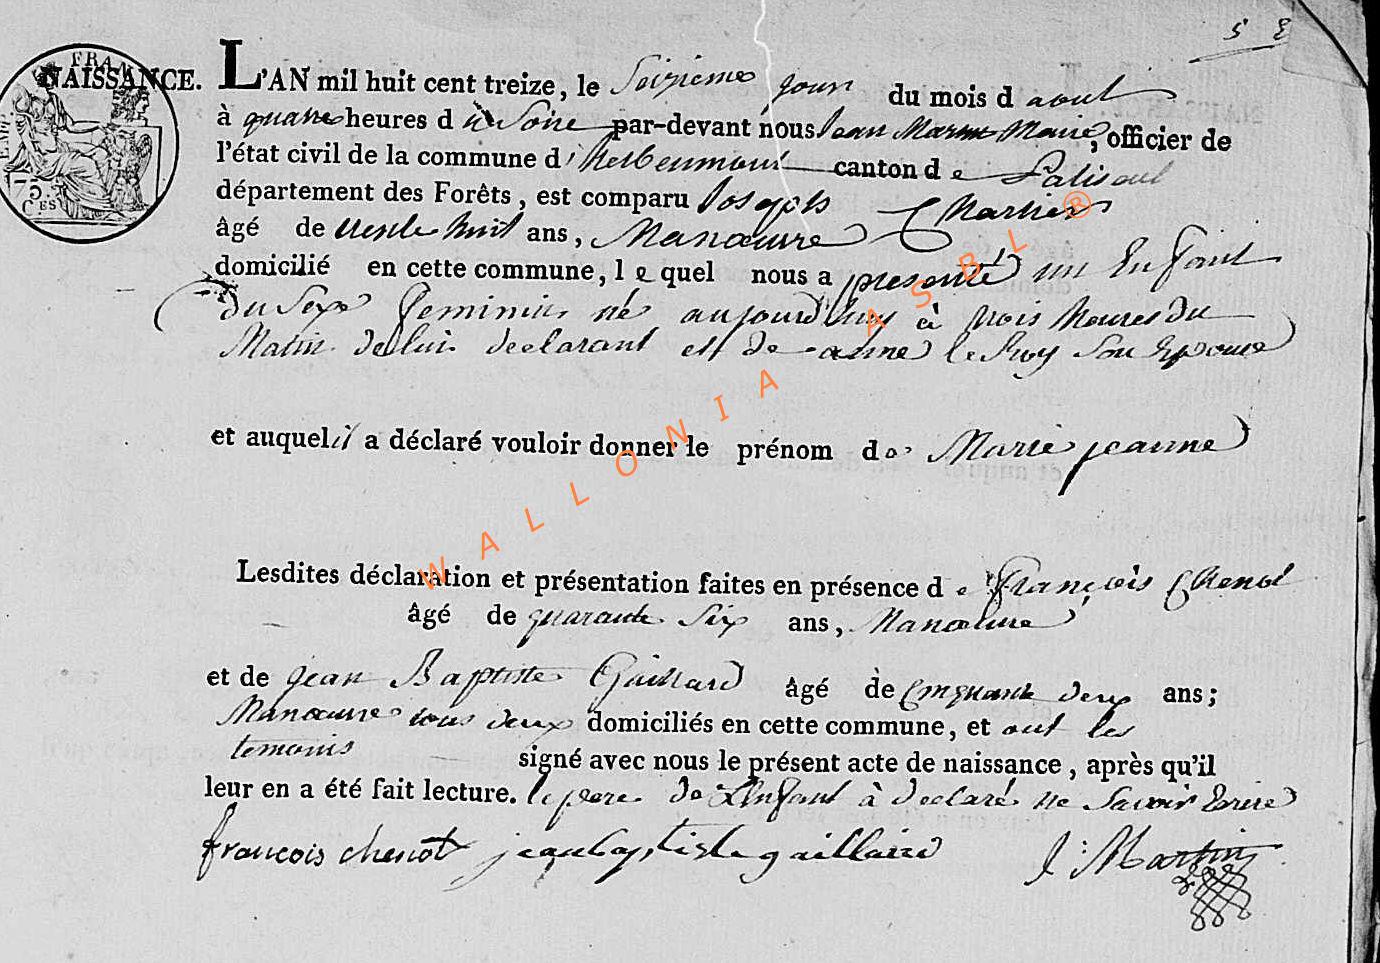 5 E
FRAN
NAISSANCE. L'AN mil huit cent treize, le Seizieme jour du mois d aout
à quatre heures d u Soire par-devant nous Jean Martin Maire, officier de
l'état civil de la commune d' herbeumont canton d e Paliseul
département des Forêts, est comparu Joseph Charlier
âgé de trente huit ans, Manœuvre
domicilié en cette commune, l e quel nous a presenté un Enfant
du Sexe Feminin né aujourd'huy à trois heures du
Matin de lui declarant et de anne le Roy Son Epouse
et auquel il a déclaré vouloir donner le prénom de Marie jeanne
Lesdites déclaration et présentation faites en présence d e François Chenot
âgé de quarante Six ans, Manœuvre
et de jean Baptiste Gaillard âgé de Cinquante deux ans;
Manœuvre tous deux domiciliés en cette commune, et ont les
temoins signé avec nous le présent acte de naissance, après qu'il
leur en a été fait lecture. le pere de L'Enfant à declaré ne Savoir Ecrire
francois chenot jean baptiste gaillaird J: Martin
75
CES
WALLONIA ASBL ®